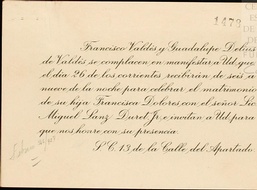 1473
Francisco Valdés y Guadalupe Delius
de Valdés se complacen en manifestar a Ud. que
el día 26 de los corrientes recibirán de seis a
nueve de la noche para celebrar el matrimonio
de su hija Francisca Dolores, con el señor Lic
Miguel Lanz Duret Jr. e invitan a Ud. para
que nos honre con su presencia.
S/C. 13 de la Calle del Apartado.